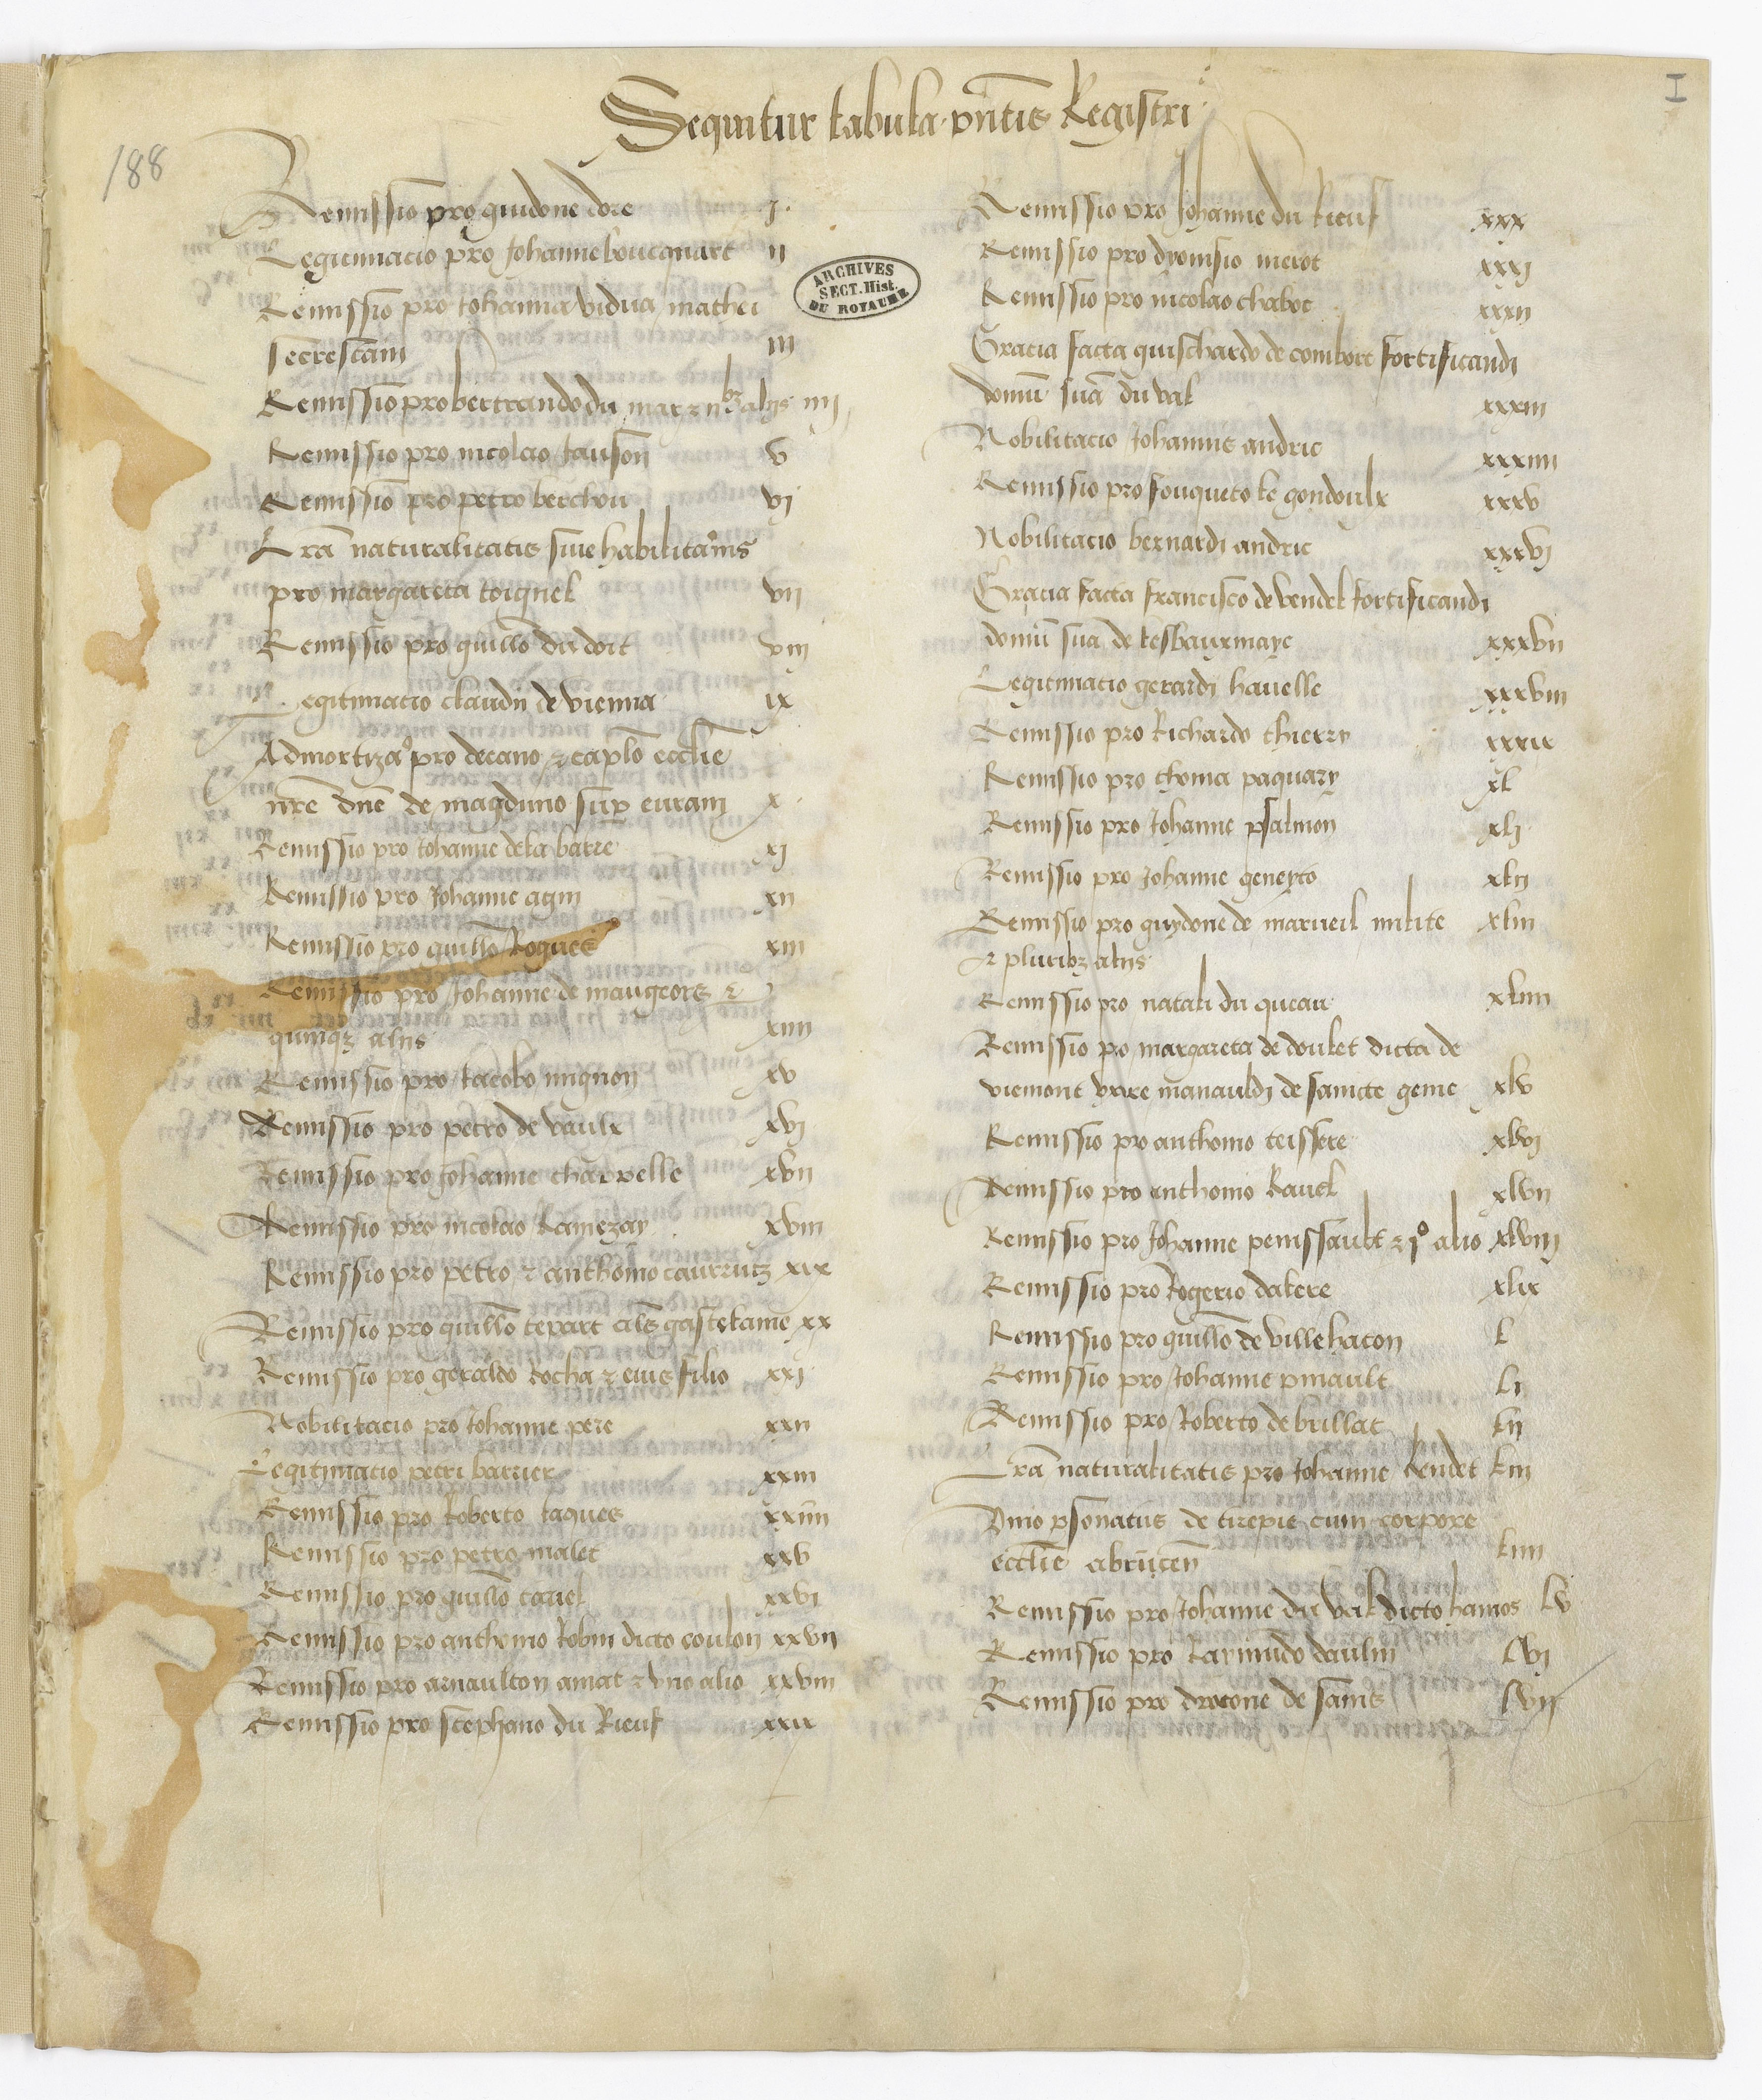 I
188
Sequitur tabula pn̄tis Registri
ARCHIVES
SECT. Hist.
DU ROYAUME
Remissio pro guidone dore j.
Legitimacio pro Johanne boucquart ii
Remissio pro Johanna vidua mathei
secrestain iii
Remissio pro bertrando du mar aliis iiij
Remissio pro nicolao Jauson v
Remissio pro petro berchou vj
Lr̄a naturalitatis siue habilitac̄onis
pro margareta toignel vii
Remissio pro guillo du doit viii
Legitimacio claudii de vienna ix
Admortizac̄o pro decano & caplo ecclie
nr̄e dn̄e de magduno sup̄ euram x
Remissio pro Johanne de la barre xj
Remissio pro Johanne agin xii
Remissio pro guillo Roques xiii
Remissio pro Johanne de maugeors &
quinqz aliis xiiii
Remissio pro Jacobo mignon xv
Remissio pro petro de vaulx xvj
Remissio pro Johanne chappelle xvii
Remissio pro nicolao Ramezay xviii
Remissio pro petro & anthonio caurrutz xix
Remissio pro guillo tepart al̄s gastelame xx
Remissio pro geraldo Rocha & eius filio xxj
Nobilitacio pro Johanne pere xxii
Legitimacio petri barrier xxiii
Remissio pro Roberto Jaques xxiiii
Remissio pro petro malet xxv
Remissio pro guillo cariel xxvi
Remissio pro anthonio Robin dicto coulon xxvii
Remissio pro arnaulton amat & vno alio xxviii
Remissio pro stephano du Rieuf xxix
Remissio pro Johanne du Rieuf xxx
Remissio pro dyonisio meiot xxxj
Remissio pro nicolao chabot xxxii
Gracia facta guischardo de combort fortificandi
domū suā du val xxxiii
Nobilitacio Johannis andric xxxiiii
Remissio pro fouqueto le gondoulx xxxv
Nobilitacio bernardi andric xxxvj
Gracia facta francisco de vendel fortificandi
domū suā de lesbaupmaye xxxvii
Legitimacio gerardi havelle xxxviii
Remissio pro Richardo thierry xxxix
Remissio pro thoma paquary xl
Remissio pro Johanne psalmon xlj
Remissio pro Johanne geneyto xlii
Remissio pro guydone de marueil milite xliii
& pluribz aliis
Remissio pro natali du queau xliiii
Remissio pro margareta de doulet dicta de
viemont vxore manauldi de saincte geme xlv
Remissio pro anthonio teissere xlvj
Remissio pro anthonio Ravel xlvii
Remissio pro Johanne penissault & jº alio xlviij
Remissio pro Rogerio dalere xlix
Remissio pro guillo de villehaton l
Remissio pro Johanne pinault li
Remissio pro Roberto de brillac lii
Lr̄a naturalitatis pro Johanne bendet liii
Vnio p̄sonatus de tirepie cum corpore
ecclīe abrincen̄ liiii
Remissio pro Johanne du val dicto hamos lv
Remissio pro Raymūdo daulin lvj
Remissio pro drocone de sanis lvij